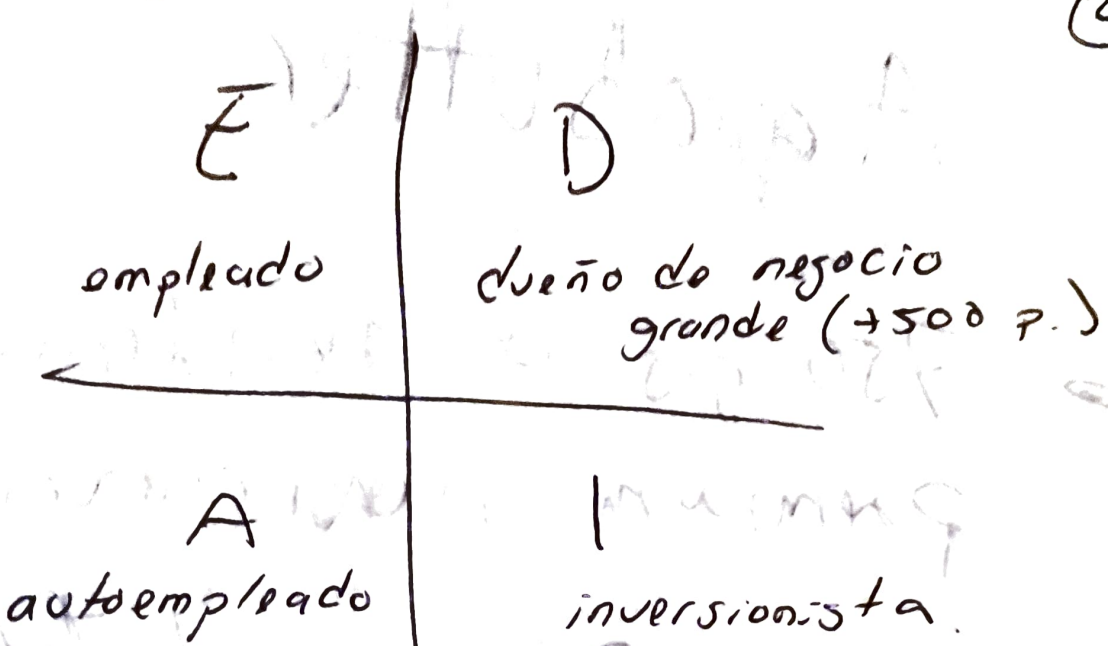 E
D
empleado
dueño de negocio
grande (+500 p.)
A
I
autoempleado
inversionista.